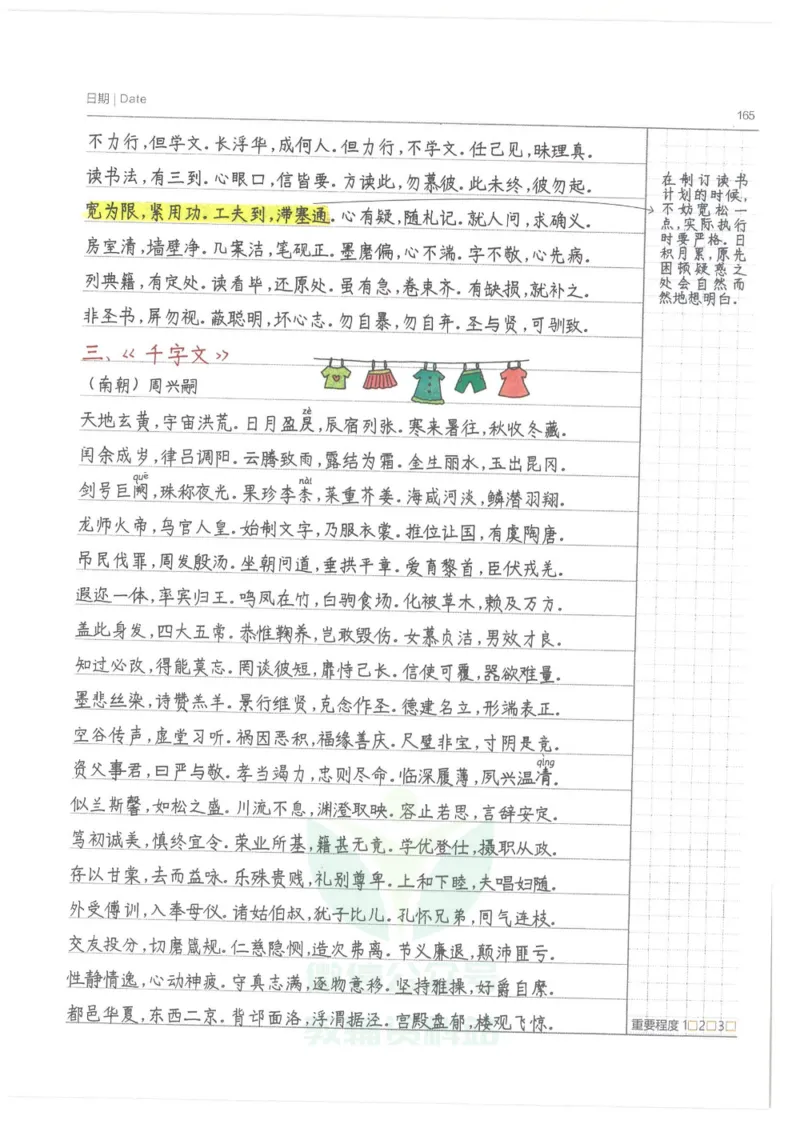 日期 | Date
165
不力行,但学文.长浮华,成何人.但力行,不学文.任己见,昧理真.
读书法,有三到.心眼口,信皆要.方读此,勿慕彼.此未终,彼勿起.
宽为限,紧用功.工夫到,滞塞通.心有疑,随札记.就人问,求确义.
房室清,墙壁净.几案洁,笔砚正.墨磨偏,心不端.字不敬,心先病.
列典籍,有定处.读看毕,还原处.虽有急,卷束齐.有缺损,就补之.
非圣书,屏勿视.蔽聪明,坏心志.勿自暴,勿自弃.圣与贤,可驯致.
在制订读书
计划的时候,
不妨宽松一
点,实际执行
时要严格.日
积月累,原先
困顿疑惑之
处会自然而
然地想明白.
三、《千字文》
(南朝)周兴嗣
zè
天地玄黄,宇宙洪荒.日月盈昃,辰宿列张.寒来暑往,秋收冬藏.
闰余成岁,律吕调阳.云腾致雨,露结为霜.金生丽水,玉出昆冈.
quē nài
剑号巨阙,珠称夜光.果珍李柰,菜重芥姜.海咸河淡,鳞潜羽翔.
龙师火帝,鸟官人皇.始制文字,乃服衣裳.推位让国,有虞陶唐.
吊民伐罪,周发殷汤.坐朝问道,垂拱平章.爱育黎首,臣伏戎羌.
遐迩一体,率宾归王.鸣凤在竹,白驹食场.化被草木,赖及万方.
盖此身发,四大五常.恭惟鞠养,岂敢毁伤.女慕贞洁,男效才良.
知过必改,得能莫忘.罔谈彼短,靡恃己长.信使可覆,器欲难量.
墨悲丝染,诗赞羔羊.景行维贤,克念作圣.德建名立,形端表正.
空谷传声,虚堂习听.祸因恶积,福缘善庆.尺璧非宝,寸阴是竞.
qìng
资父事君,曰严与敬.孝当竭力,忠则尽命.临深履薄,夙兴温凊.
似兰斯馨,如松之盛.川流不息,渊澄取映.容止若思,言辞安定.
笃初诚美,慎终宜令.荣业所基,籍甚无竟.学优登仕,摄职从政.
存以甘棠,去而益咏.乐殊贵贱,礼别尊卑.上和下睦,夫唱妇随.
外受傅训,入奉母仪.诸姑伯叔,犹子比儿.孔怀兄弟,同气连枝.
交友投分,切磨箴规.仁慈隐恻,造次弗离.节义廉退,颠沛匪亏.
性静情逸,心动神疲.守真志满,逐物意移.坚持雅操,好爵自縻.
都邑华夏,东西二京.背邙面洛,浮渭据泾.宫殿盘郁,楼观飞惊.
重要程度 1□2□3□